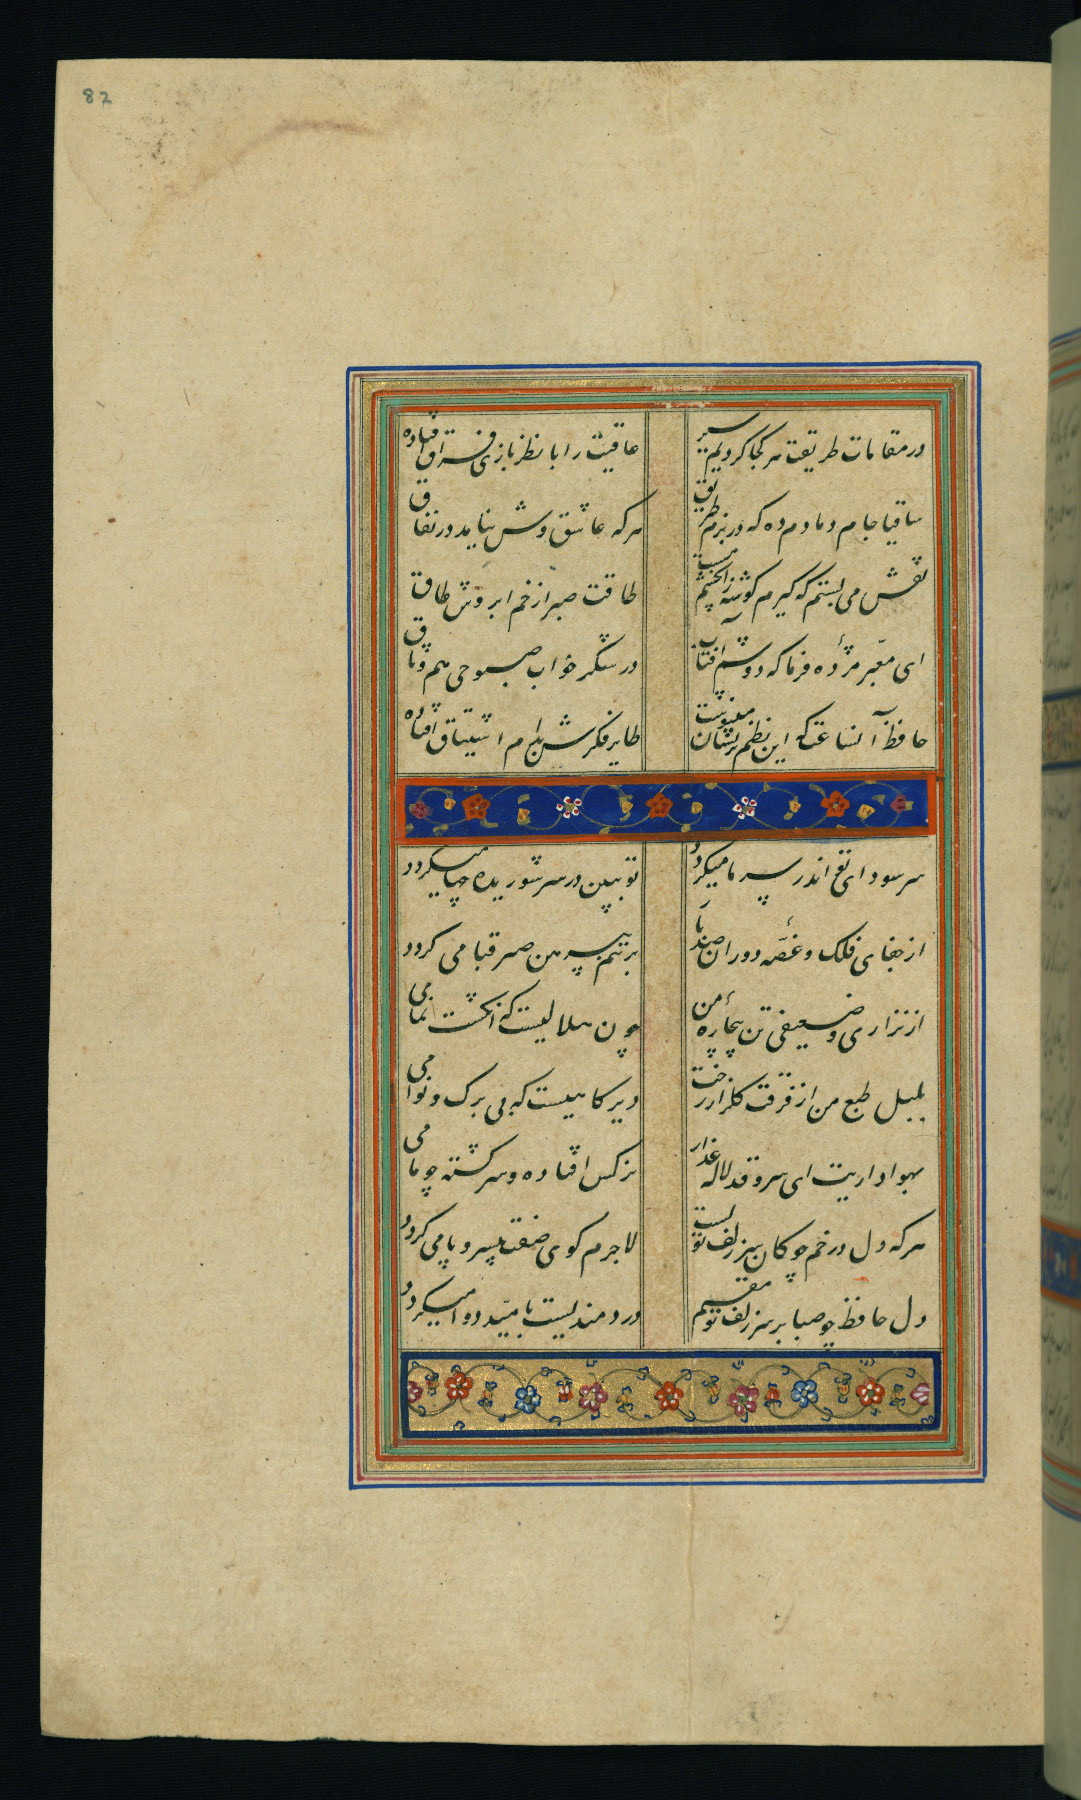 82
در مقامات طریقت هر کجا کردیم سیر
عاقبت را با نظربازی فراق افتاده
ساقیا جام دمادم ده که در بزم طریق
هر که عاشق وش نیامد در نفاق
نقش می بستم که گیرم گوشه زان چشم مست
طاقت صبر از خم ابروش طاق
ای معبر مژده فرما که دوشم آفتاب
در شکر خواب صبوحی هم وثاق
حافظ آنساعت که این نظم پریشان مینوشت
طایر فکرش بدام اشتیاق افتاده
سر سودای تو اندر سر ما میگردد
تو ببین در سر شوریده چها میگردد
از جفای فلک و غصه دوران صد بار
بر تنم پیرهن صبر قبا می گردد
از نزاری و ضعیفی تن بیچاره من
چون هلالیست که انگشت نما می
بلبل طبع من از فرقت گلزار رخت
دیرگاهیست که بی برگ و نوا می
بهواداریت ای سرو قد لاله عذار
بز کس افتاده و سرگشته چو ما می
هر که دل در خم چوکان سر زلف تو بست
لاجرم گوی صفت بیسر و پا می گردد
دل حافظ چو صبا بر سر زلف تو مقیم
دردمندیست بامید دوا میگردد